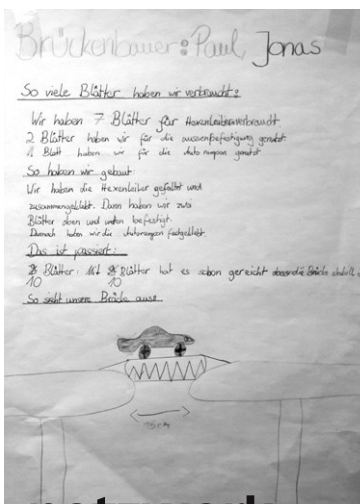 Brückenbauer: Paul, Jonas
So viele Blätter haben wir verbraucht:
Wir haben 7 Blätter für Hexenleiter verbraucht.
2 Blätter haben wir für die aussenbefestigung genutzt
1 Blatt haben wir für die Auto rampen genutzt
So haben wir gebaut:
Wir haben die Hexenleiter gefaltet und
zusammengeklebt. Dann haben wir zwei
Blätter oben und unten befestigt.
Danach haben wir die Autorampen festgeklebt.
Das ist passiert:
Blätter: Mit Blätter hat es schon gereicht die Brücke
10 10
So sieht unsere Brücke aus:
15 cm